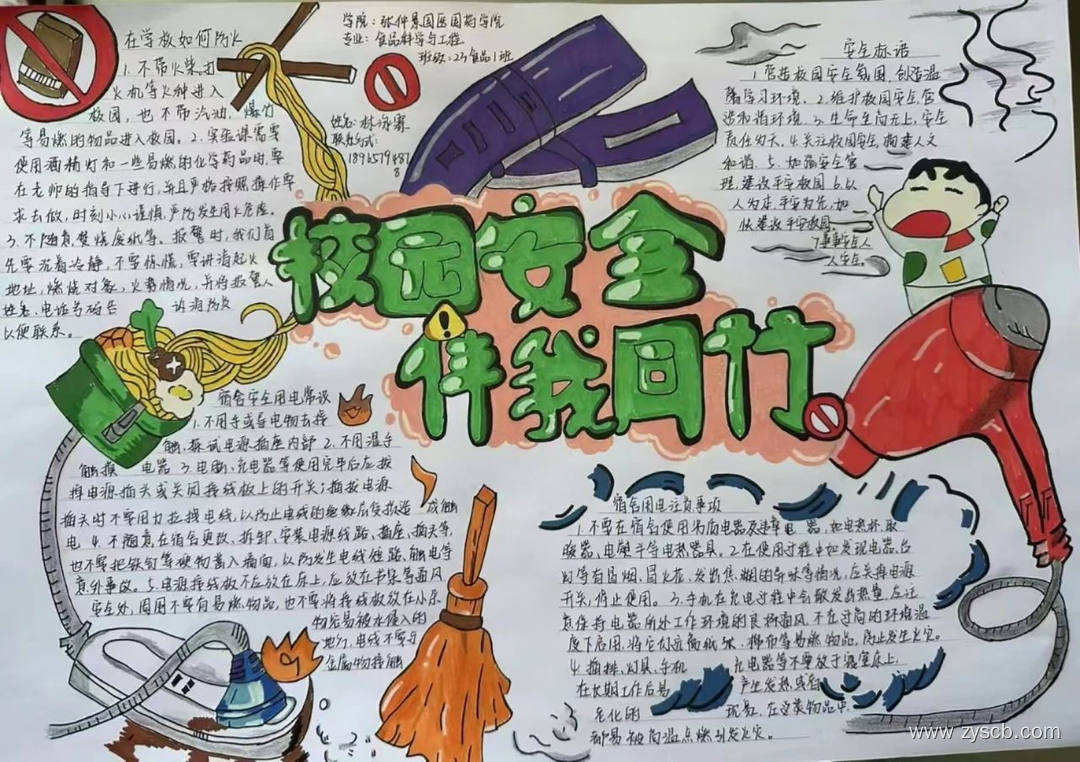 校园安全
伴我同行
学院:张仲景国医国药学院
专业:食品科学与工程
班级:23食品1班
姓名:
联系方式:
在学校如何防火
1.不带火柴、打
火机等火种进入
校园,也不带汽油、爆竹
等易燃的物品进入校园。2.实验课需要
使用酒精灯和一些易燃的化学药品时,要
在老师的指导下进行,并且严格按照操作要
求去做,时刻小心谨慎,严防发生用火危险。
3.不随意焚烧废纸等。报警时,我们首
先要沉着冷静,不要惊慌,要讲清起火
地址,燃烧对象,火势情况,并将报警人
姓名、电话号码告 诉消防及
以便联系。
安全标语
1.营造校园安全氛围,创造温
馨学习环境。2.维护校园安全,营
造和谐环境。3.生命至高无上,安全
责任为天。4.关注校园安全,构建人文
和谐。5.加强安全管
理,建设平安校园。6.以
人为本,平安为先,加
快建设平安校园。
7.事事安全人
人安全。
宿舍安全用电常设
1.不用手或导电物去接
触、探试电源插座内部 2.不用湿手
触摸 电器 3.电脑、充电器等使用完毕后应拔
掉电源插头或关闭接线板上的开关;插拔电源
插头时不要用力拉拽电线,以防止电线的绝缘层受损造 成触
电 4.不随意在宿舍更改、拆卸、安装电源线路、插座、插头等,
也不要把铁钉等硬物蔷入墙面,以防发生电线短路、触电等
意外事故。5.电源接线板不应放在床上,应放在书桌等通风
安全处,周围不要有易燃物品,也不要将接线板放在水杂
物容易被水侵入的
地方,电线不要与
金属物接触
宿舍用电注意事项
1.不要在宿舍使用劣质电器及违章电 器,如电热杯、取
暖器、电熨斗等电热器具。2.在使用过程中如发现电器、台
灯等有冒烟、冒火花、发出焦糊的异味等情况,应关掉电源
开关,停止使用。3.手机在充电过程中会散发出热量,应注
意保持电器所处工作环境的良好通风,不在过高的环境温
度下启用,将它们远离纸张、棉布等易燃物品,防止发生火灾。
4.插排、灯具、手机 充电器等不要放于寝室床上,
在长期工作后易 产生发热或有
老化的 现象,在这类物品中
都易被高温点燃引发火灾。
www.zyscb.com